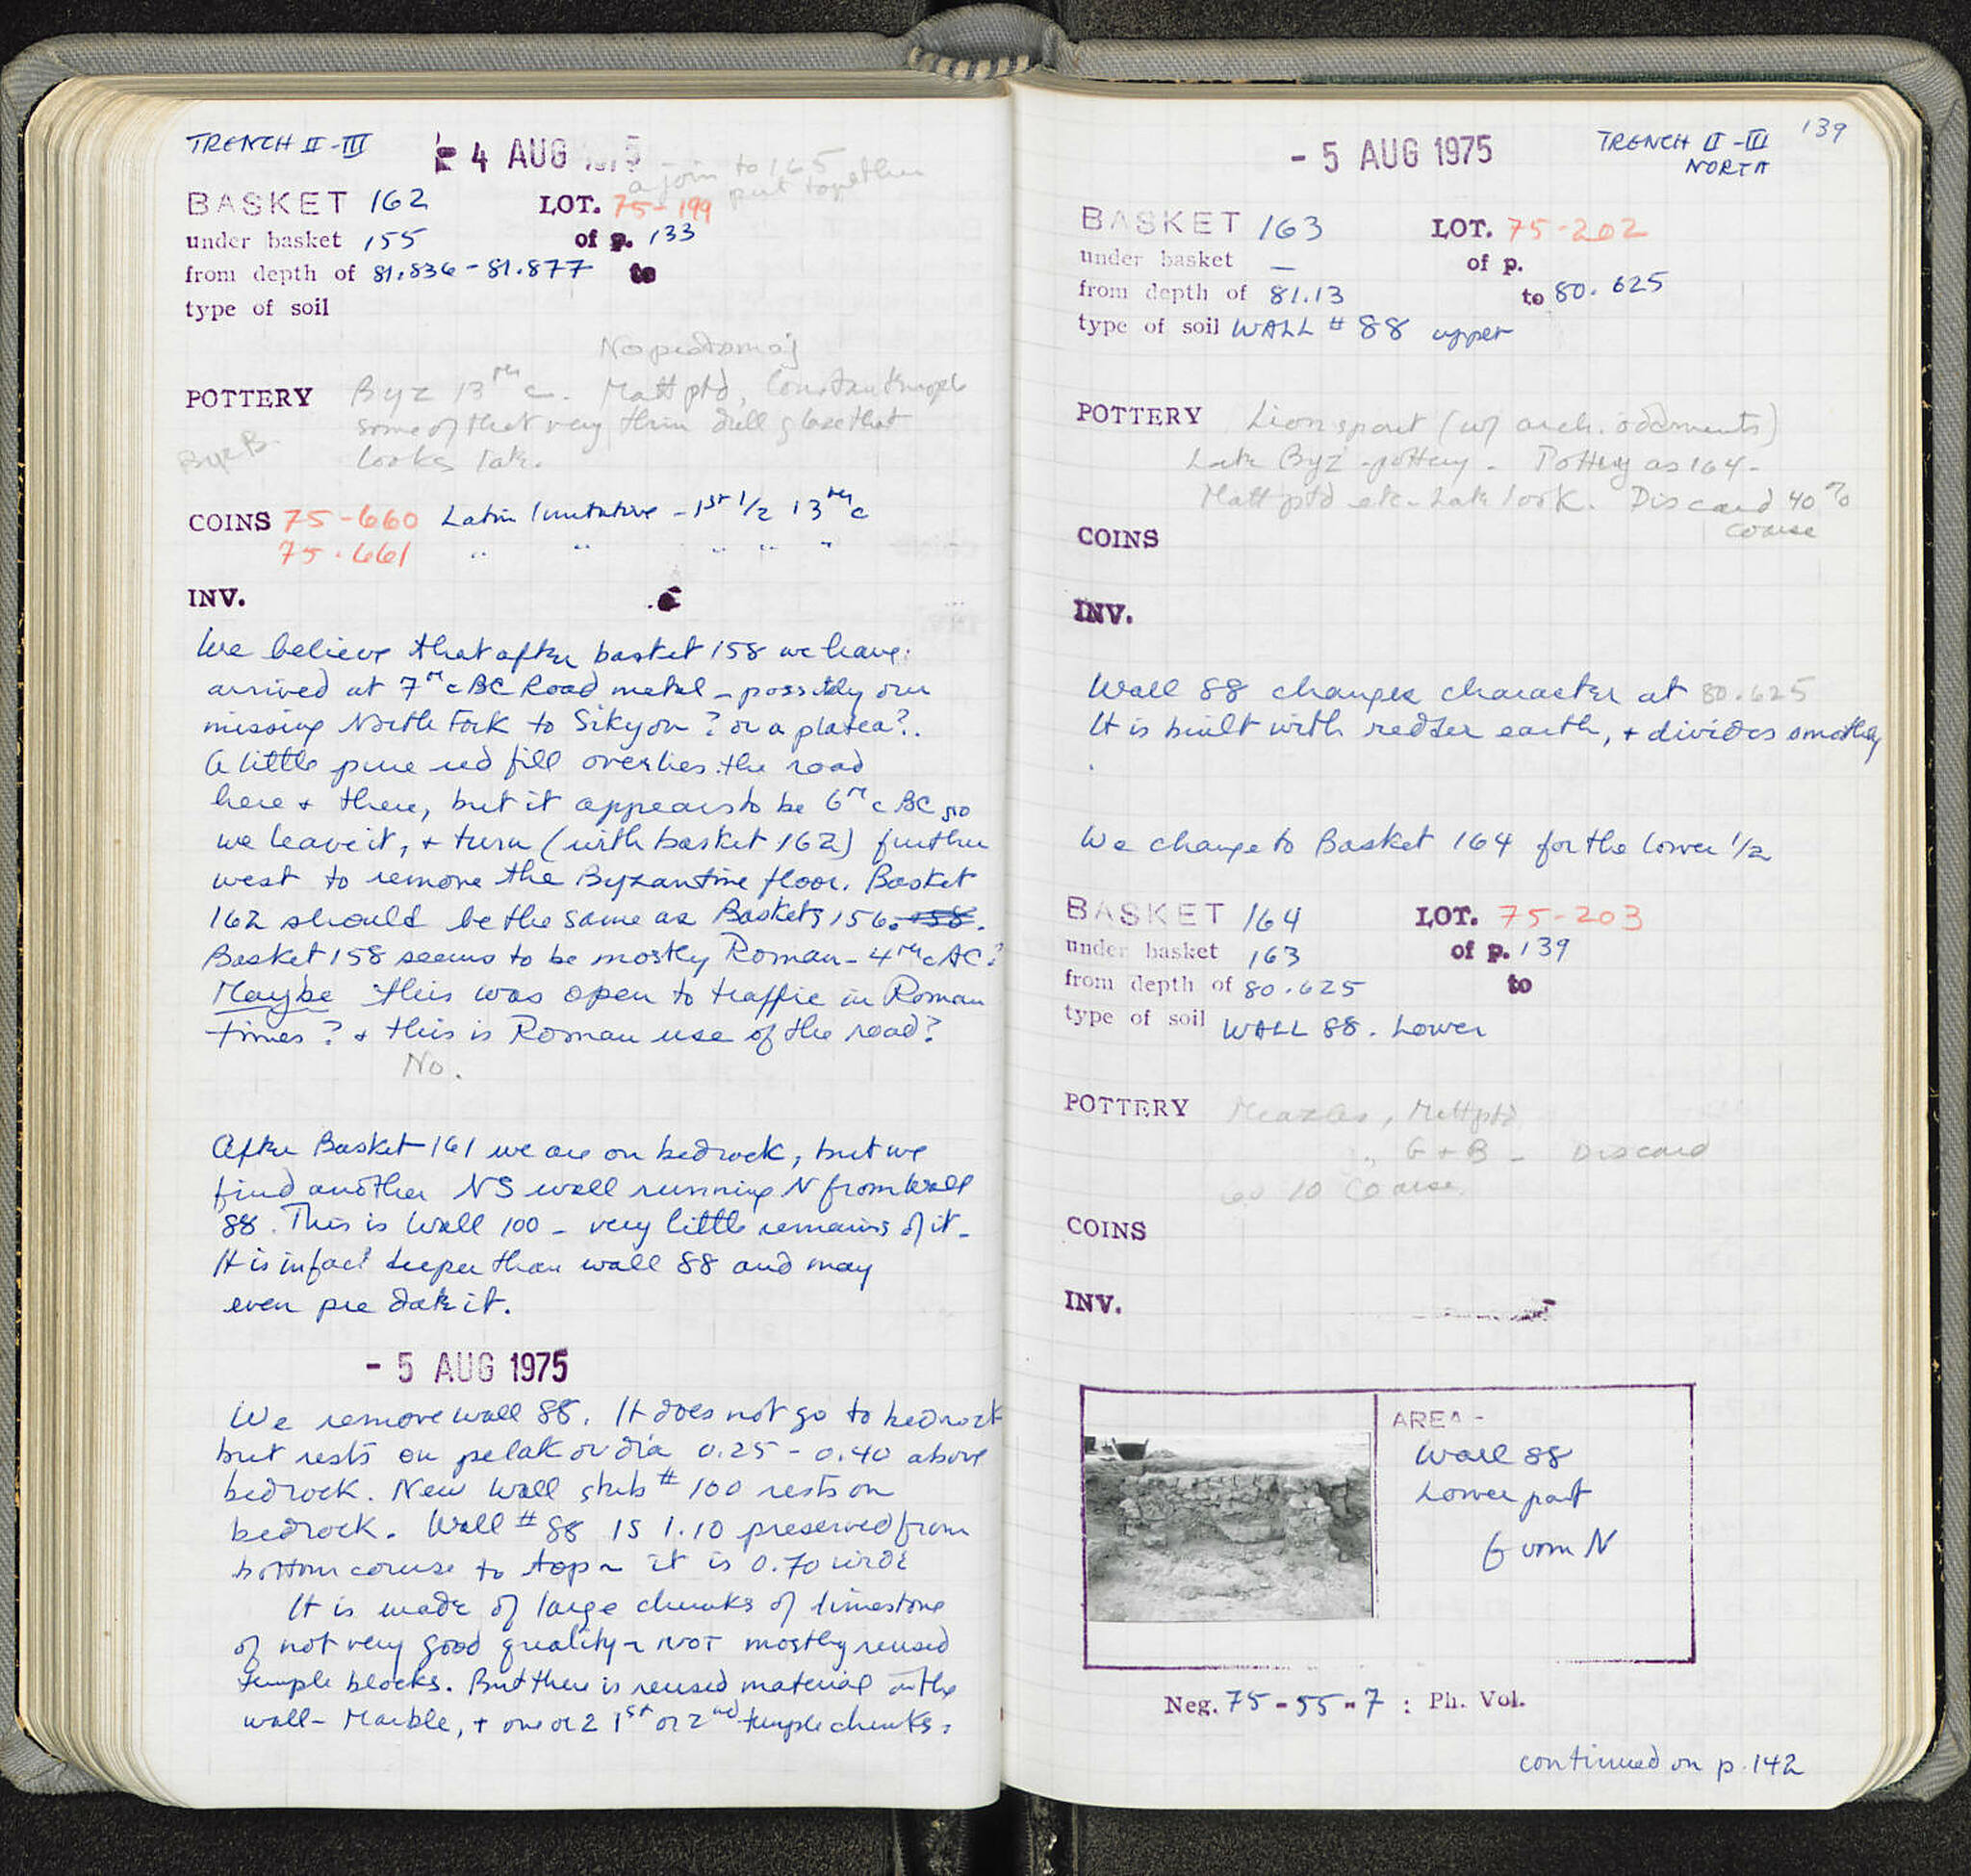 TRENCH II-III
- 4 AUG 1975
a join to 165
put together
BASKET 162 LOT. 75-199
under basket 155 of p. 133
from depth of 81.836-81.877 to
type of soil
POTTERY Byz 13th c. Matt ptd, Constantinople
some of that very thin dull glaze that
looks late.
Byz B
COINS 75-660 Latin Imitative - 1st 1/2 13th c
75-661 " " " " "
INV.
We believe that after basket 158 we have
arrived at 7th c BC Road metal - possibly our
missing North Fork to Sikyon? or a platea?.
A little pure red fill overlies the road
here + there, but it appears to be 6th c BC so
we leave it, + turn (with basket 162) further
west to remove the Byzantine floor. Basket
162 should be the same as Baskets 156. 158.
Basket 158 seems to be mostly Roman - 4th c AC?
Maybe this was open to traffic in Roman
times? + this is Roman use of the road?
No.
After Basket 161 we are on bedrock, but we
find another NS wall running N from Wall
88. This is Wall 100 - very little remains of it -
It is in fact deeper than wall 88 and may
even pre date it.
- 5 AUG 1975
We remove wall 88. It does not go to bedrock
but rests on pelakoudia 0.25 - 0.40 above
bedrock. New Wall stub # 100 rests on
bedrock. Wall # 88 IS 1.10 preserved from
bottom course to top ~ it is 0.70 wide
It is made of large chunks of limestone
of not very good quality ~ NOT mostly reused
temple blocks. But there is reused material in the
wall - Marble, + one or 2 1st or 2nd temple chunks.
139
- 5 AUG 1975
TRENCH II-III
NORTH
BASKET 163 LOT. 75-202
under basket — of p.
from depth of 81.13 to 80.625
type of soil WALL # 88 upper
POTTERY Lion spout (w/ arch. oddments)
Late Byz pottery - Pottery as 164 -
Matt ptd etc - Late look. Discard 40%
coarse
COINS
INV.
Wall 88 changes character at 80.625
It is built with redder earth, + divides smoothly
We change to Basket 164 for the lower 1/2
BASKET 164 LOT. 75-203
under basket 163 of p. 139
from depth of 80.625 to
type of soil WALL 88. Lower
POTTERY Measles, Matt ptd
" G + B - Discard
10 Coarse
COINS
INV.
AREA -
Wall 88
Lower part
from N
Neg. 75-55-7 : Ph. Vol.
continued on p. 142